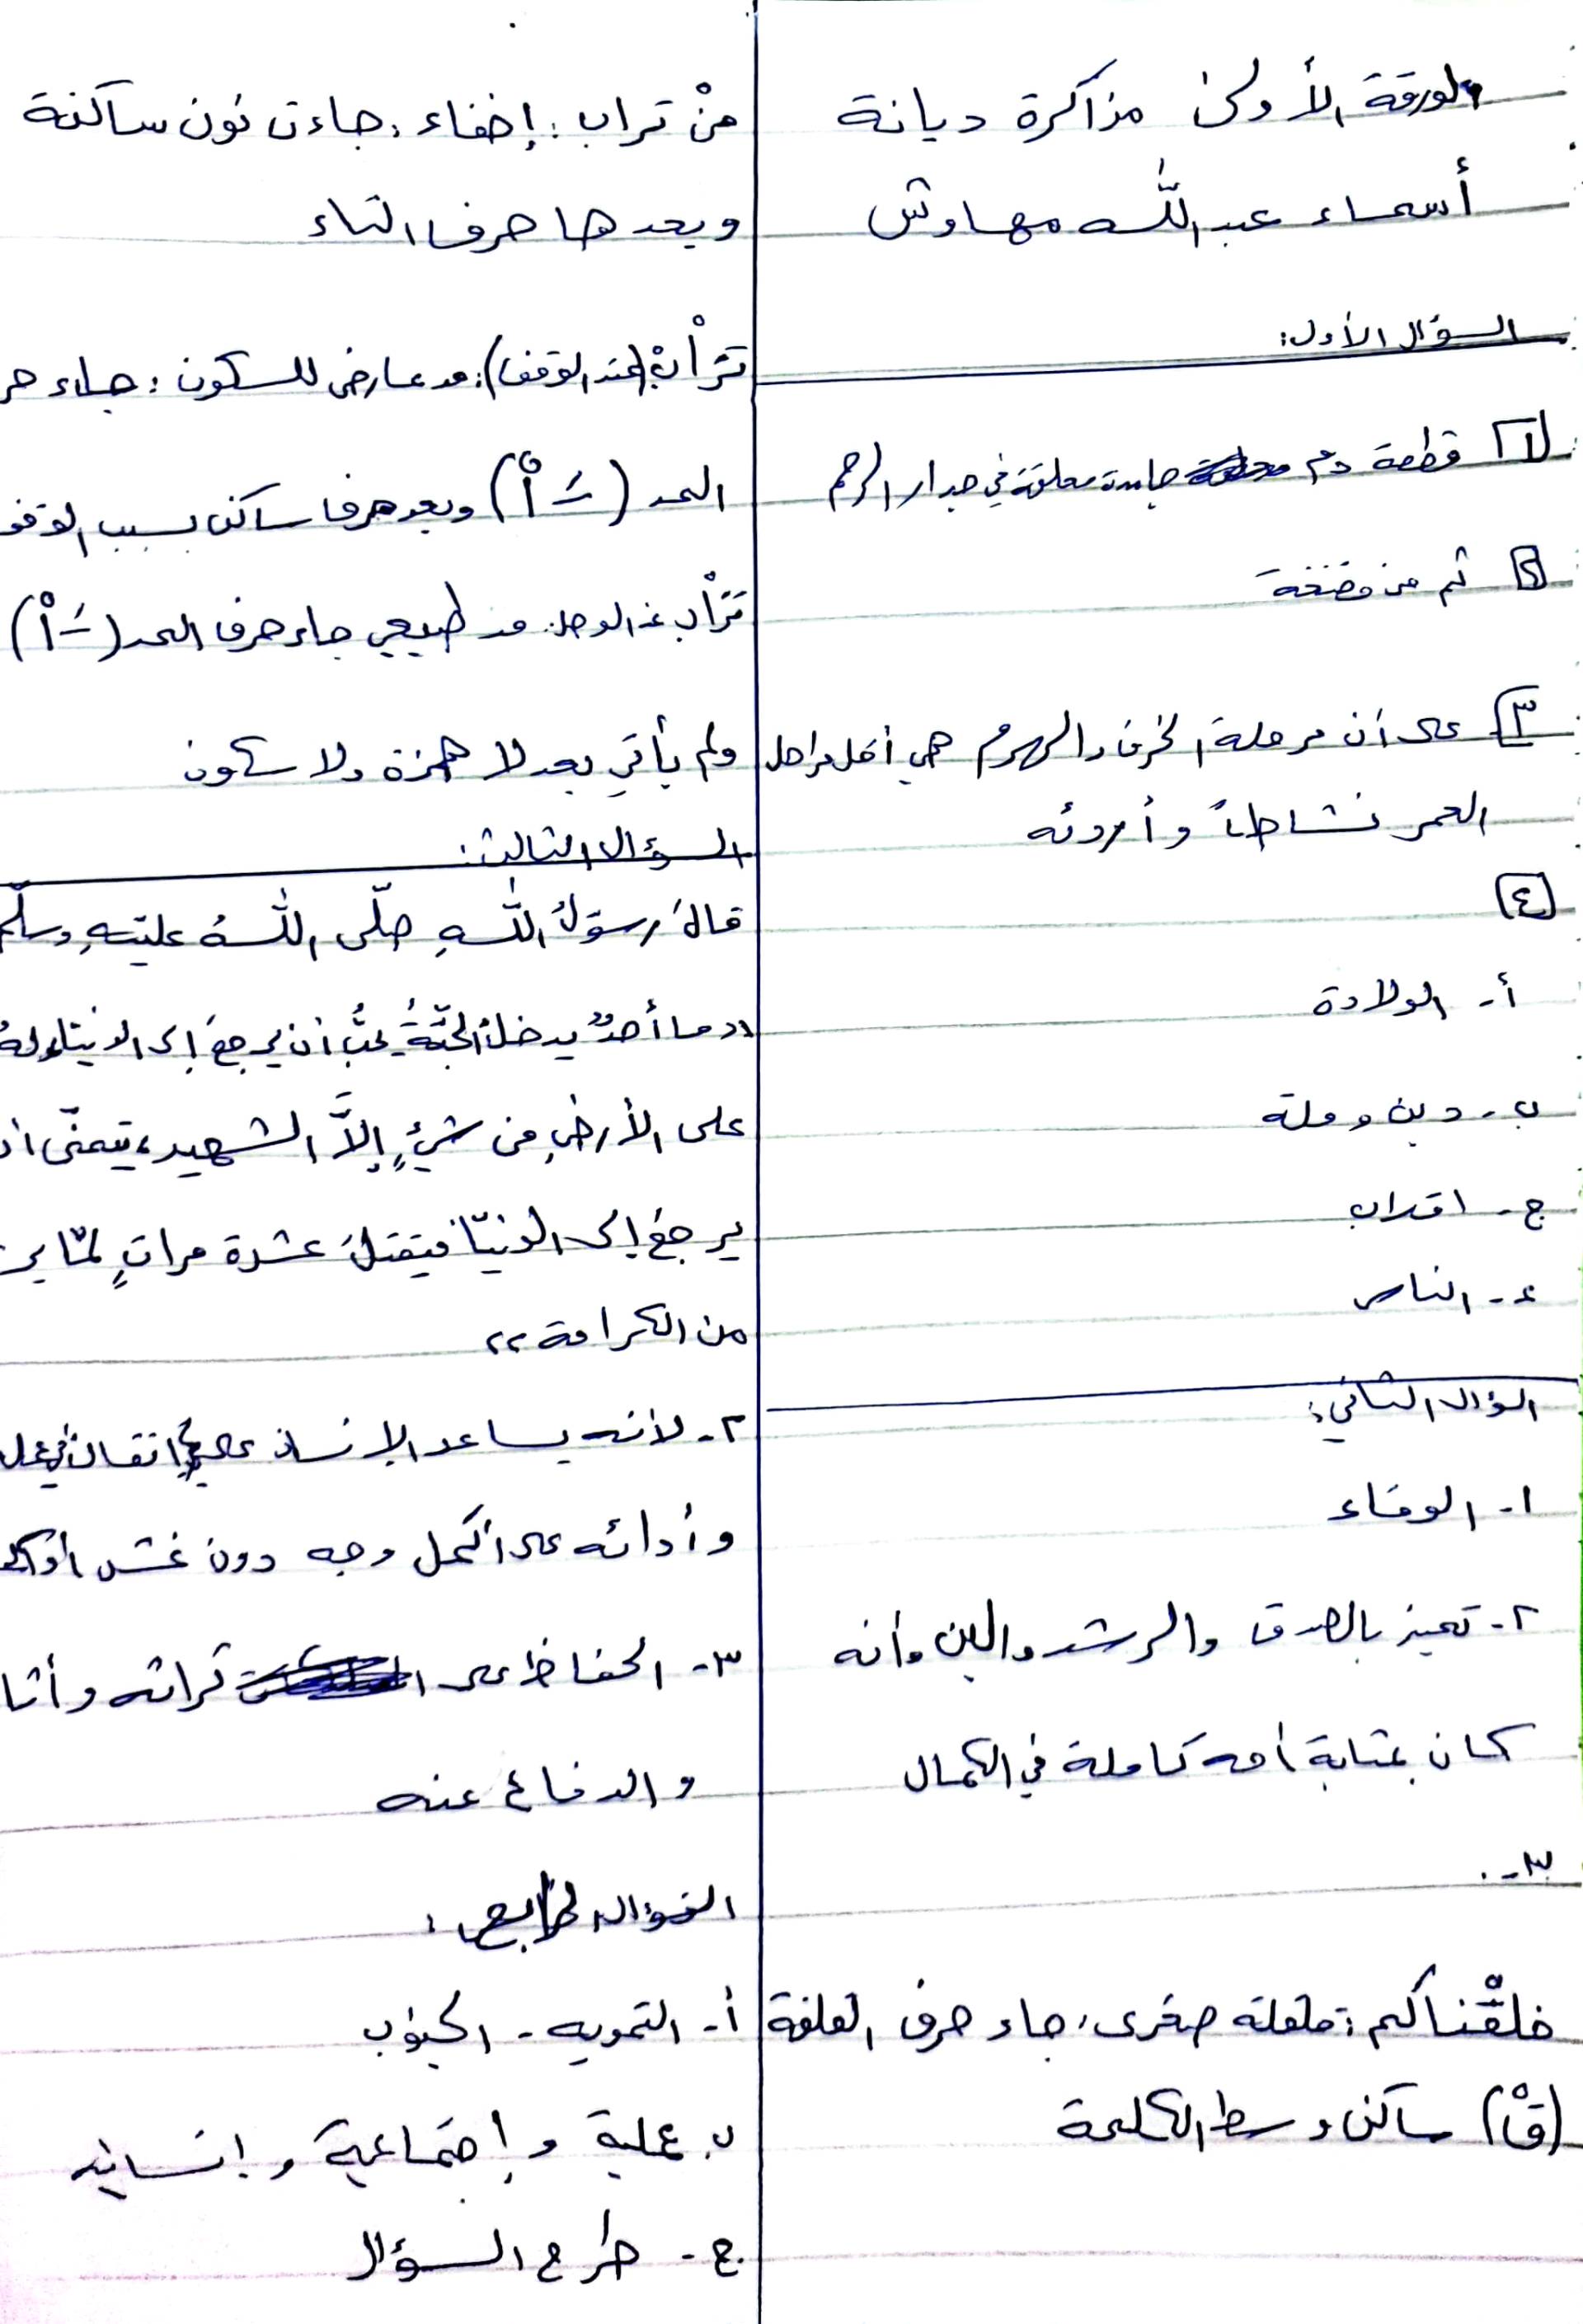 الورقة الأولى مذاكرة ديانة
أسماء عبد الله مهاوش
السؤال الأول:
١ قطعة دم جامدة معلقة في جدار الرحم
٢ ثم من مضغة
٣ على أن مرحلة الخرف والهرم هي أقل مراحل
العمر نشاطاً وأردئه
٤
أ- الولادة
ب- دين وملة
ج- اقتراب
د- الناس
السؤال الثاني:
١- الوفاء
٢- تميز بالصدق والرشد والدين وأنه
كان بمثابة أمه كاملة في الكمال
٣-
خلقْناكم: قلقلة صغرى، جاء حرف القلقة
(قْ) ساكن وسط الكلمة
منْ تراب: إخفاء: جاءت نون ساكنة
وبعدها حرف التاء
ترَاْبْ (عند الوقف): مد عارض للسكون: جاء حر
المد (ـَ اْ) وبعد حرف ساكن بسبب الوقف
ترَاْب عند الوصل: مد طبيعي جاء حرف المد (ـَ اْ)
ولم يأتي بعد لا همزة ولا سكون
السؤال الثالث:
قالَ رسوْلُ اللَّهِ صلّى اللَّهُ عليْهِ وسلّم
"ما أحدٌ يدخلُ الجنّةَ يحبُّ أن يرجعَ إلى الدنيْا وله
على الأرضِ من شيْءٍ إلاَّ الشهيد، يتمنّى أن
يرجعَ إلى الدنيْا فيقتلَ عشرة مراتٍ لمّا ير
من الكرامة"
٢- لأنه يساعد الإنسان على إتقان العمل
وأدائه على أكمل وجه دون غش أو
٣- الحفاظ على تراثه وأثا
والدفاع عنه
السؤال الرابع:
أ- التمويه - الجيوب
ب. علمية وإجتماعية وإنسانية
ج- طرح السؤال